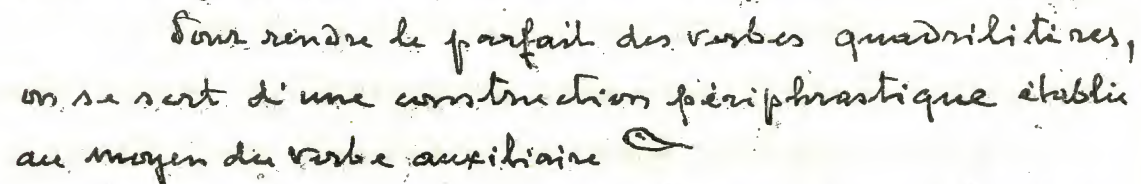 Pour rendre le parfait des verbes quadrilitères,
on se sert d'une construction périphrastique établie
au moyen du verbe auxiliaire 𓂋